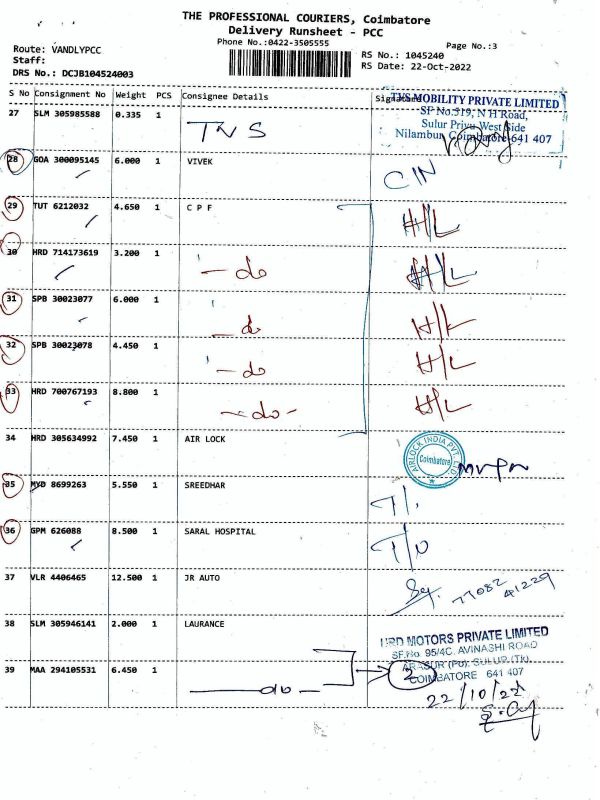 THE PROFESSIONAL COURIERS, Coimbatore
Delivery Runsheet - PCC
Phone No.:0422-3505555
Page No.:3
Route: VANDLYPCC
Staff:
DRS No.: DCJB104524003
RS No.: 1045240
RS Date: 22-Oct-2022
S No Consignment No Weight PCS Consignee Details Signature
TVS MOBILITY PRIVATE LIMITED
SF No.519, N H Road,
Sulur Privu West Side
Nilambur, Coimbatore-641 407
27 SLM 305985588 0.335 1 TVS
28 GOA 300095145 6.000 1 VIVEK CIN
29 TUT 6212032 4.650 1 C P F H/L
30 HRD 714173619 3.200 1 - do H/L
31 SPB 30023077 6.000 1 - do H/L
32 SPB 30023078 4.450 1 - do H/L
33 HRD 700767193 8.800 1 - do - H/L
34 HRD 305634992 7.450 1 AIR LOCK
AIRLOCK INDIA PVT LTD
Coimbatore
35 MYD 8699263 5.550 1 SREEDHAR
36 GPM 626088 8.500 1 SARAL HOSPITAL T/O
37 VLR 4406465 12.500 1 JR AUTO
77082 41229
38 SLM 305946141 2.000 1 LAURANCE
URD MOTORS PRIVATE LIMITED
SF.No. 95/4C, AVINASHI ROAD
ARASUR (Po), SULUR (Tk),
COIMBATORE 641 407
39 MAA 294105531 6.450 1 do 2
22/10/22